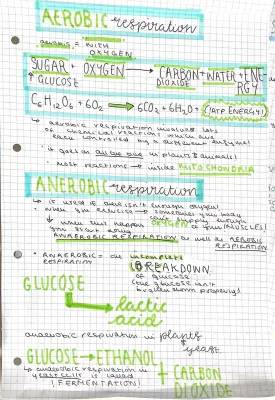 AEROBIC respiration
aerobic = WITH
OXYGEN
SUGAR + OXYGEN → CARBON + WATER + ENE-
↑ GLUCOSE DIOXIDE RGY
C6H12O6 + 6O2 → 6CO2 + 6H2O + (ATP ENERGY!)
↳ aerobic respiration involves lots
of chemical reactions which are
each controlled by a different enzyme!
• it goes on all the time in plants & animals!
• most reactions → inside MITOCHONDRIA
ANEROBIC respiration
↳ is used if there isn't enough oxygen!
when you exercise → sometimes your body
can't supply enough
↓ when this happens OXYGEN to your MUSCLES!
you start doing
ANAEROBIC RESPIRATION as well as AEROBIC
RESPIRATION
• ANAEROBIC = the incomplete
RESPIRATION BREAKDOWN
of glucose
(the glucose isn't
broken down properly)
GLUCOSE
lactic
acid.
anaerobic respiration in plants
& yeast
GLUCOSE → ETHANOL
+ CARBON
DIOXIDE
↳ anaerobic respiration in
yeast cells is called
FERMENTATION!